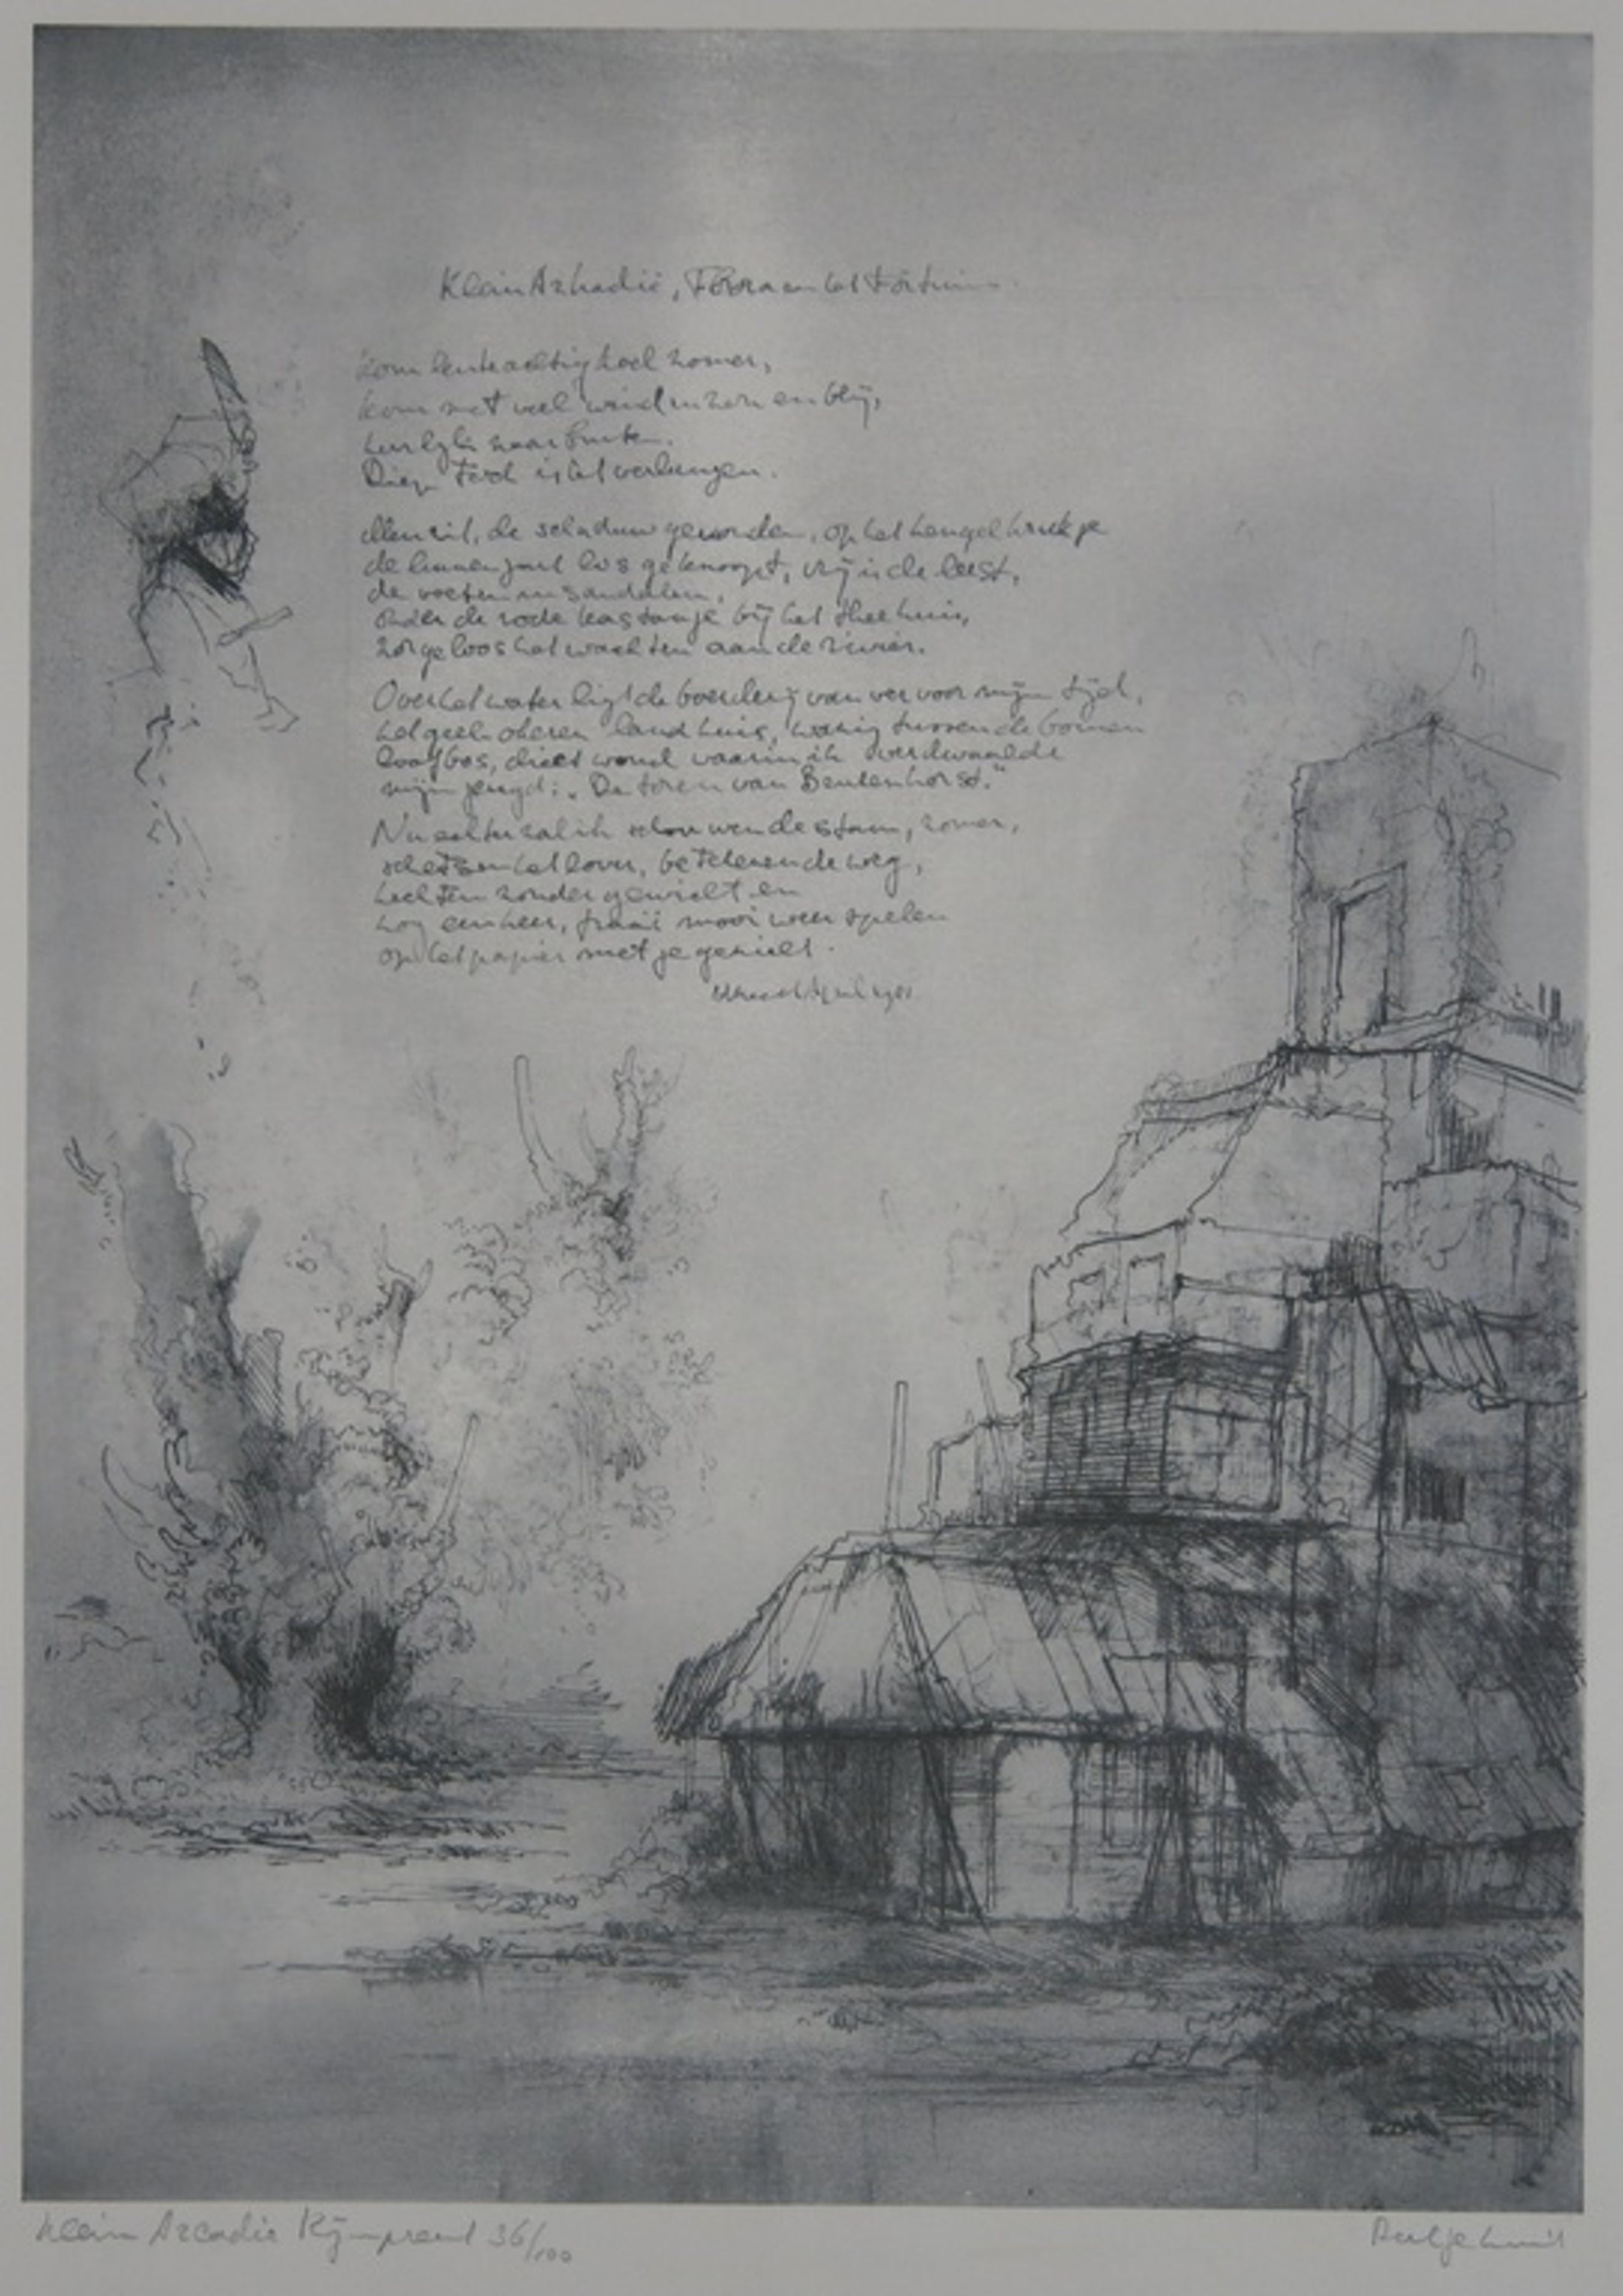 Klein Arkadië, Flora en het Fortuin
kom lenteachtig koel zomer,
kom met veel wind en zon en blij,
kurlyk naar buiten.
Diep is het verlangen.
Men zit, de schaduw geworden, op het hengelkrukje
de linnen jas los geknoopt, vrij is de leest,
de voeten in sandalen,
onder de rode kastanje bij het theehuis,
zorgeloos het wachten aan de rivier.
Over het water ligt de boerderij van ver voor mijn tijd,
het geel okeren landhuis, wazig tussen de bomen
loofbos, dicht woud waarin ik verdwaalde
mijn jeugd: „De toren van Beukenhorst."
Nu echter zal ik schouwen de stam, zomer,
schetsen het lover, betekenen de weg,
luchten zonder gewicht en
nog een keer, fraai mooi weer spelen
op het papier met je geniet.
Utrecht April 1981
Klein Arcadie Rijmprent 36/100